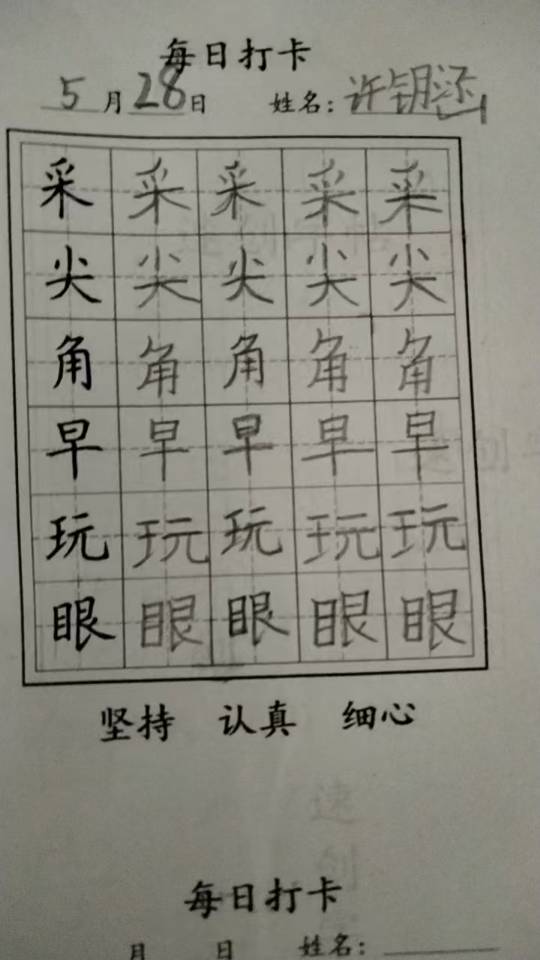 每日打卡
5月28日 姓名：许钥涵
采 采 采 采 采
尖 尖 尖 尖 尖
角 角 角 角 角
早 早 早 早 早
玩 玩 玩 玩 玩
眼 眼 眼 眼 眼
坚持 认真 细心
速创
每日打卡
月 日 姓名：